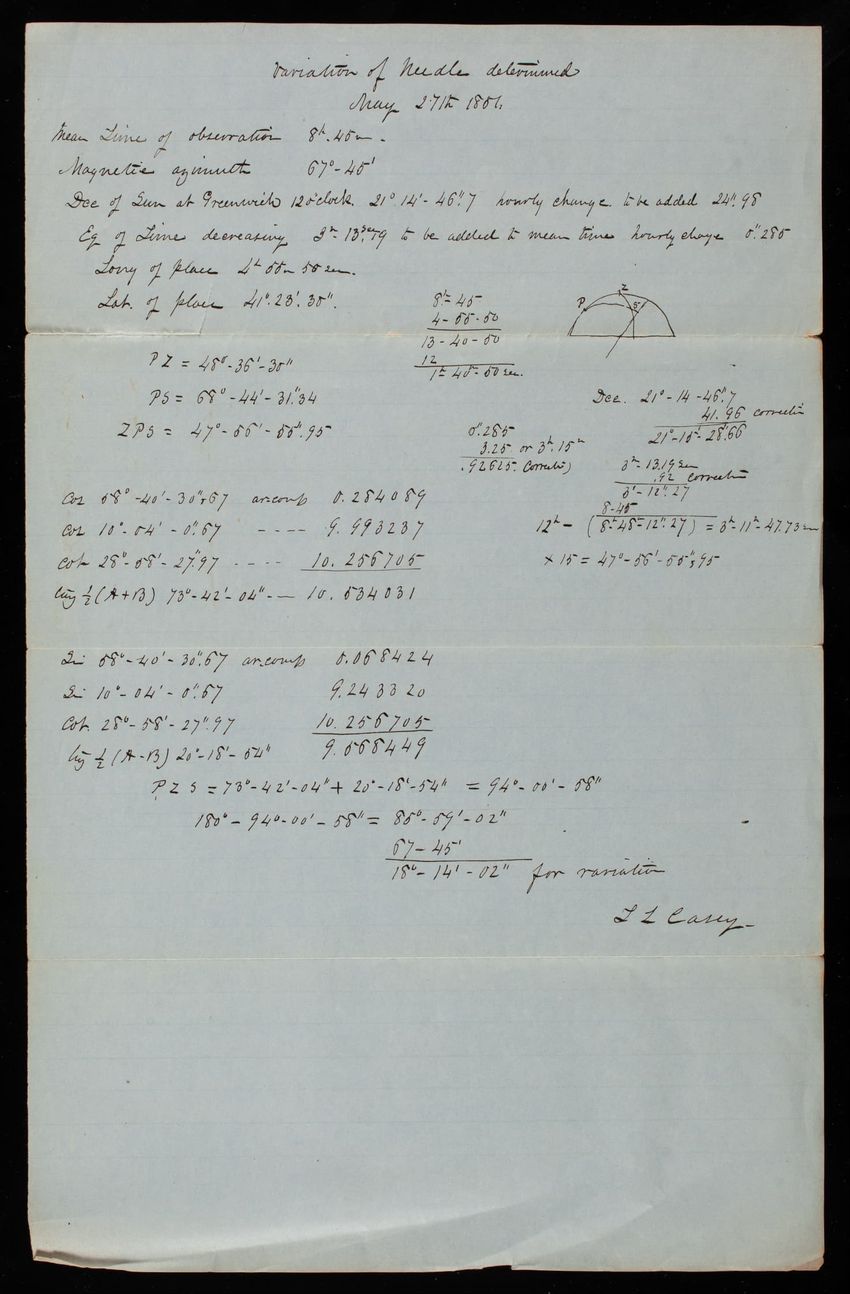 Variation of Needle determined
May 27th 1851
Mean Time of observation 8h. 45m.
Magnetic azimuth 67°-45'
Dec of Sun at Greenwich 12 o'clock. 21° 14'-46".7 hourly change to be added 24".98
Eq of Time decreasing 3m-13sec.19 to be added to mean time hourly change 0".285
Long of place 4h 55m 50 sec.
Lat. of place 41°.23'.30".
8h-45
4-55-50
13-40-50
12
1h 40m-50 sec.
P Z S
PZ = 48°-36'-30"
PS = 68°-44'-31".34
ZPS = 47°-56'-55".95
0".285
3.25 or 3h.15m
.92625. Correction
Dec. 21°-14-46".7
41.96 correction
21°-15'-28".66
3m-13.19 sec
.92 correction
3'-12".27
8-45
12h - (8h-48m-12".27) = 3h-11m-47.73 sec
× 15 = 47°-56'-55".95
Cos 58°-40'-30".67 ar.comp 0.284089
Cos 10°-04'-0".67 ---- 9.993237
Cot 28°-58'-27".97 ---- 10.256705
tang ½(A+B) 73°-42'-04" -- 10.534031
Sin 58°-40'-30".67 ar.comp 0.068424
Sin 10°-04'-0".67 9.243320
Cot. 28°-58'-27".97 10.256705
tang ½(A-B) 20°-18'-54" 9.568449
PZS = 73°-42'-04" + 20°-18'-54" = 94°-00'-58"
180°-94°-00'-58" = 85°-59'-02"
67-45'
18°-14'-02" for variation
T L Casey